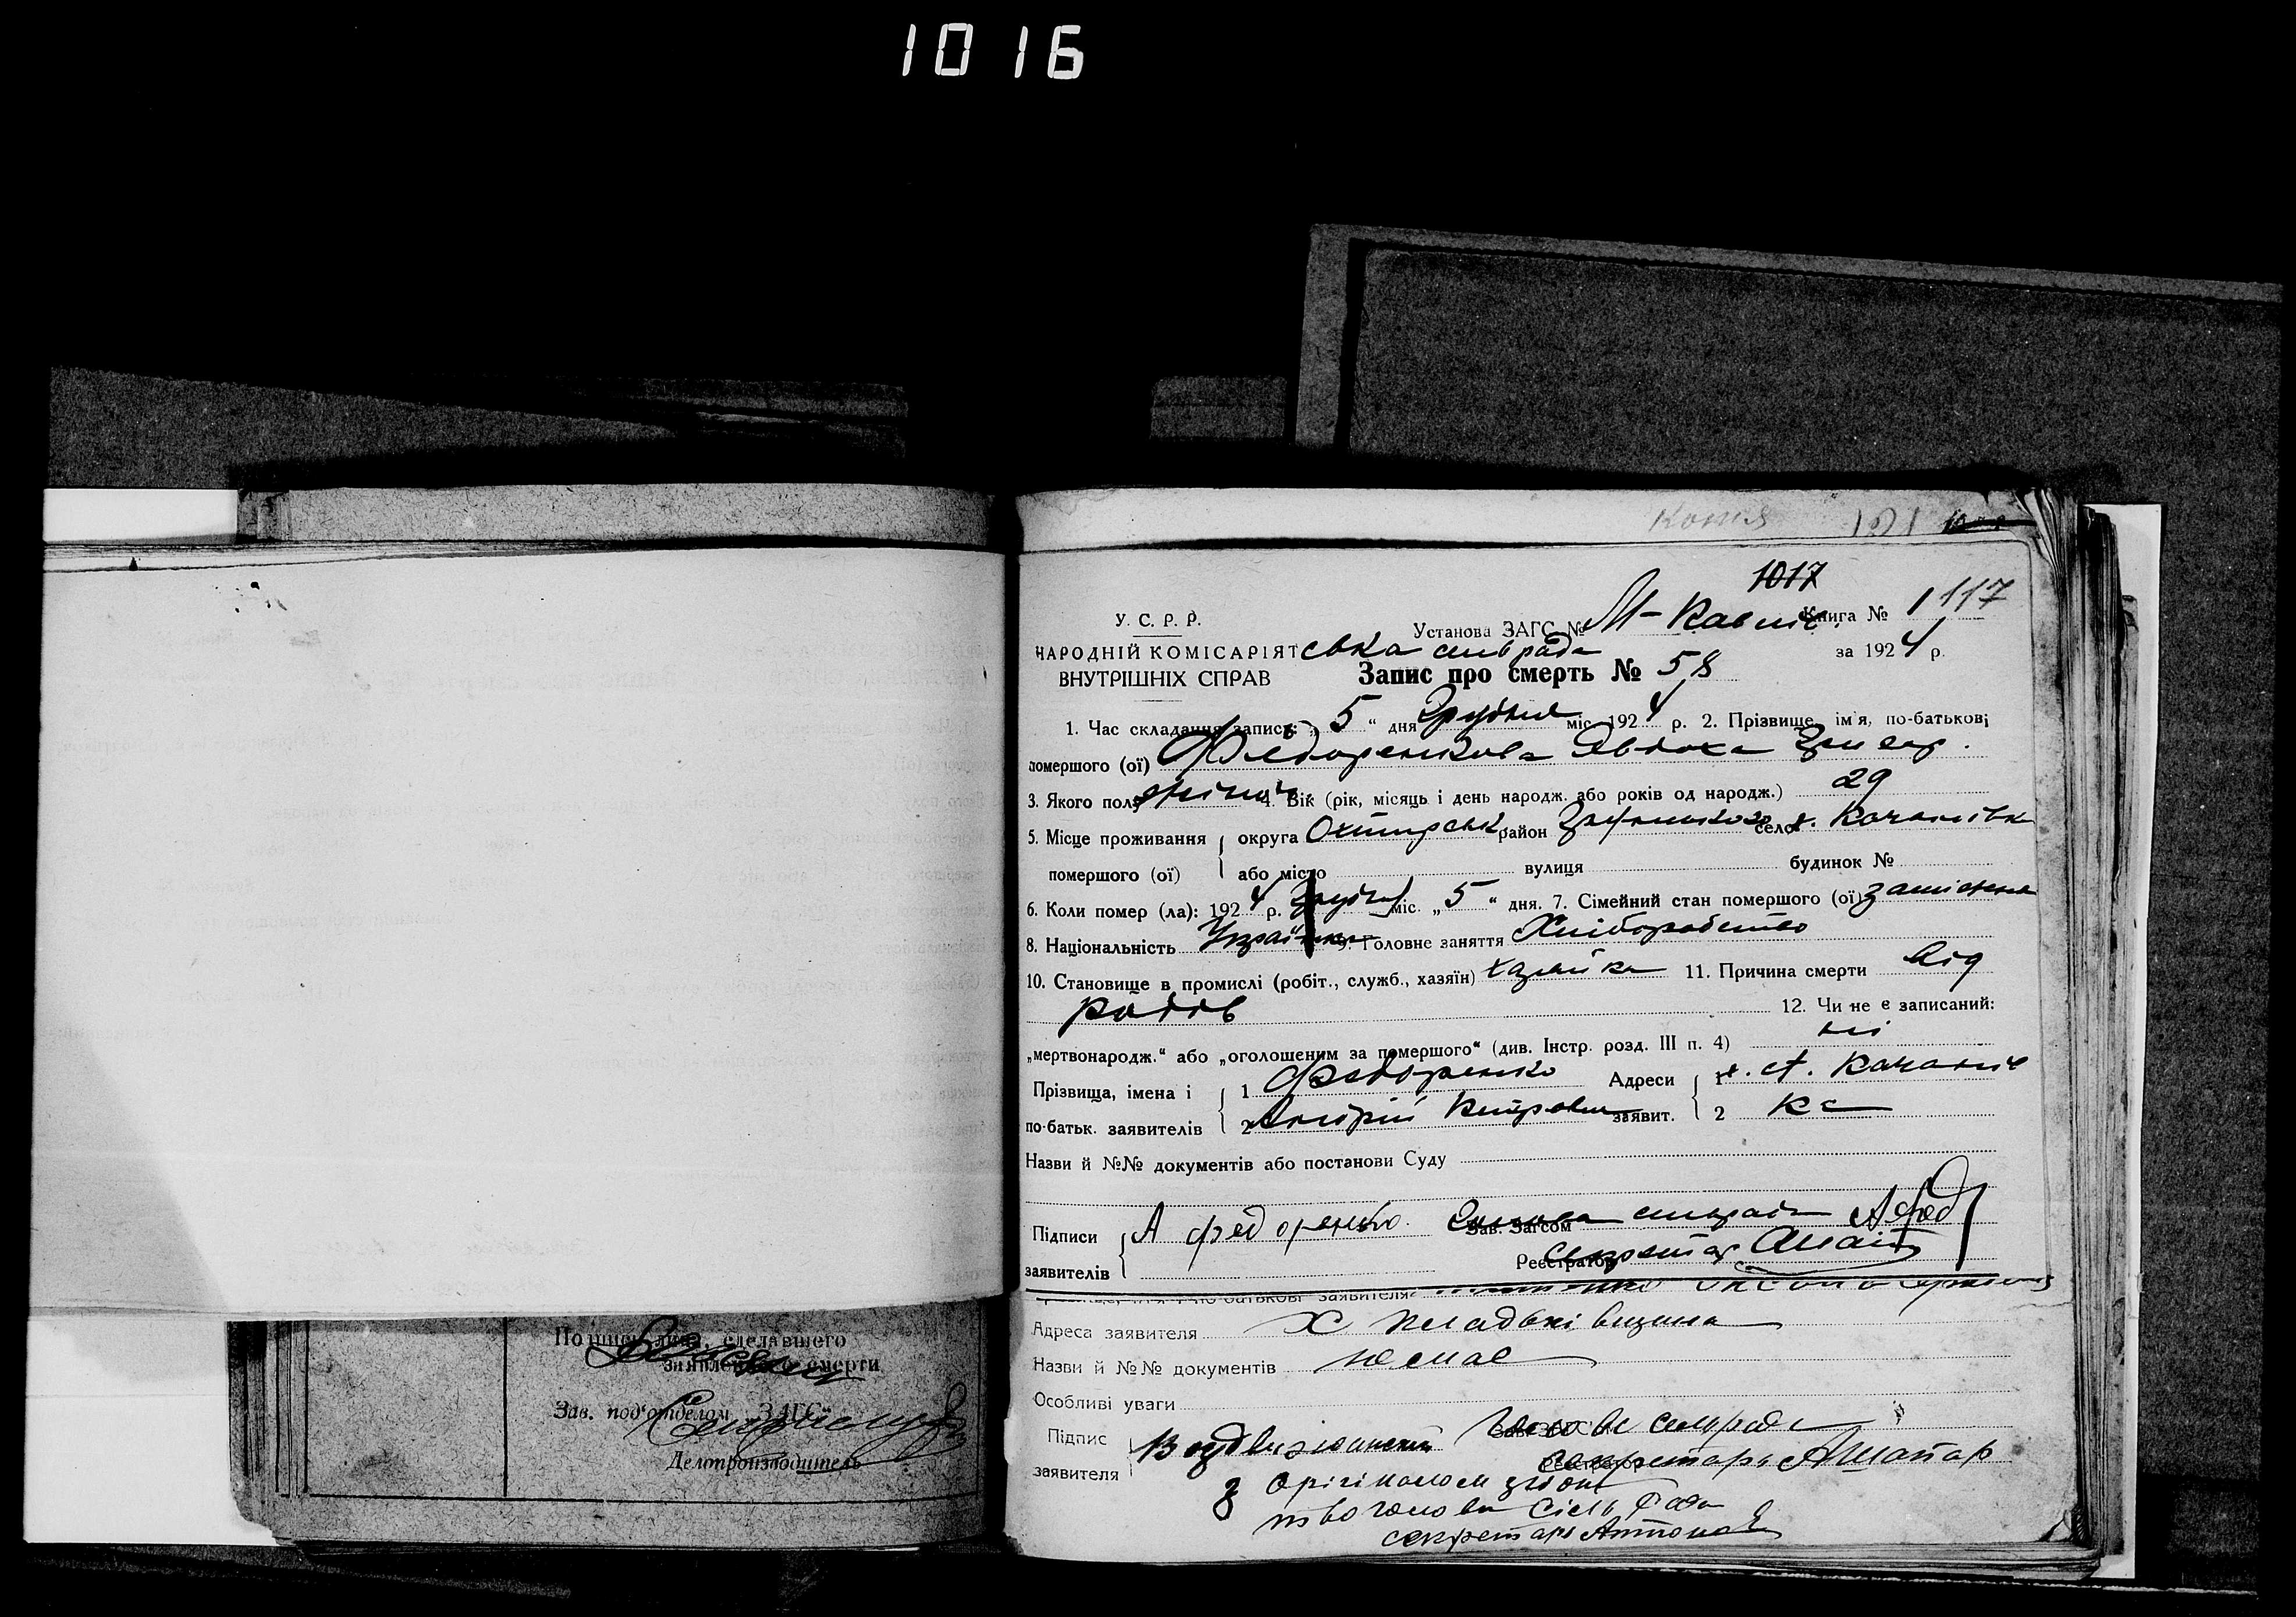 1016
Копія 121
1017
У. С. Р. Р. Установа ЗАГС № М-Павлів Книга № 1 117
НАРОДНІЙ КОМІСАРІЯТ ська сельрада за 1924 р.
ВНУТРІШНІХ СПРАВ Запис про смерть № 58
1. Час складання запису: „ 5 “ дня Грудня міс. 1924 р. 2. Прізвище, ім'я, по-батькові
помершого (ої) Федоренкова Явдоха Григор.
3. Якого полу жіноч. 4. Вік (рік, місяць і день народж. або років од народж.) 29
5. Місце проживання округа Охтирськ район село х. Качанівка
помершого (ої) або місто вулиця будинок №
6. Коли помер (ла): 1924 р. Грудня міс. „ 5 “ дня. 7. Сімейний стан помершого (ої) заміжня
8. Національність Українка 9. Головне заняття Хліборобство
10. Становище в промислі (робіт., служб., хазяїн) хазяйка 11. Причина смерти від
родів 12. Чи не є записаний:
„мертвонародж.“ або „оголошеним за помершого“ (див. Інстр. розд. III п. 4) ні
Прізвища, імена і 1 Федоренко Адреси 1 х. Качанів
по-батьк. заявителів 2 Андрій Петрович заявит. 2 ка
Назви й №№ документів або постанови Суду
Підписи А федоренко. Зав. Загсом Голова сельради
заявителів Реєстратор Секретар
Прізвище, ім'я і по-батькові заявителя
Адреса заявителя Х
Назви й №№ документів немає
Особливі уваги
Підпис Воздвиженский Голова сельради
заявителя Реєстратор секретарь
З орігіналом згідно
голова Сіль Ради
секретарь
Подпись лица, сделавшего
заявление о смерти
Зав. под'отделом ЗАГС
Делопроизводитель